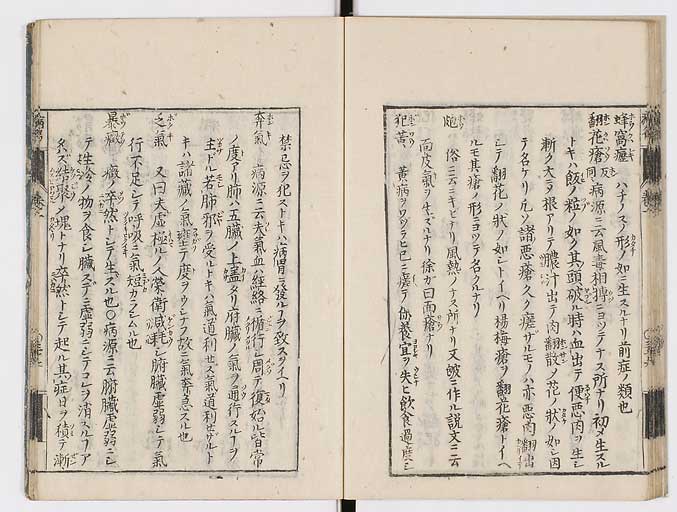 蜂窩癧 ハチノスノ形ノ如ニ生スルナリ前症ノ類也
翻花瘡 同 病源ニ云風毒相搏ニヨツテナス所ナリ初メ生スル
トキハ飯ノ粒ノ如ク其頭破ル時ハ血出テ便悪肉ヲ生シ
漸ク大ニ根アリテ膿汁出テ肉翻散ノ花ノ状ノ如シ因
テ名ケリ凡ソ諸悪瘡久ク瘥ザルモノハ亦悪肉翻出
シテ翻花ノ状ノ如シトイヘリ楊梅瘡ヲ翻花瘡トイヘ
ルモ其瘡ノ形ニヨツテ名クルナリ
皰 俗ニ云ニキビナリ風熱ノナス所ナリ又皰ニ作ル説文ニ云
面皮氣ヲ生ズルナリ徐カ曰面瘡ナリ
犯黄 黄病ヲワヅラヒ已ニ瘥テ保養宜ヲ失シ飲食過度シ
禁忌ヲ犯ストキハ病胃ニ發ルヲ致スヲイヘリ
奔氣 病源ニ云夫氣血ハ經絡ニ循行シ周テ復始ル皆常
ノ度アリ肺ハ五臓ノ上蓋タリ府臓ノ氣ヲ通行スルヿヲ
主ドル若肺邪ヲ受ルトキハ氣道利セス氣道利セザルト
キハ諸藏ノ氣壅テ度ヲウシナフ故ニ氣奔急スル也
乏氣 又曰夫虚極ル人榮衛減耗シ腑臓虚弱シテ氣
行不足シテ呼吸ニ氣短カラシムル也
暴癥 癥ノ卒然トシテ生スル也○病源ニ云腑臓虚弱ニシ
テ生冷ノ物ヲ食シ臓ステニ虚弱ニシテコレヲ消スルヿア
タハズ結聚ノ塊トナリ卒然トシテ起ル其症日ヲ積テ漸